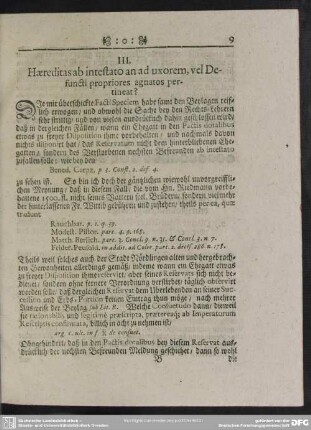 :o: 9
III.
Hæreditas ab intestato an ad uxorem, vel De-
functi propriores agnatos per-
tineat?
Die mir überschickte Facti Speciem habe samt den Beylagen reif-
lich erwogen, und obwohl die Sache bey den Rechts-Lehrern
sehr strittig und von vielen ausdrücklich dahin geschlossen wird,
daß in dergleichen Fällen, wann ein Ehegatt in den Pactis dotalibus
etwas zu freyer Disposition ihme vorbehalten, und nachmals davon
nichts disponirt hat, das Reservatum nicht dem hinterbliebenen Ehe-
gatten, sondern des Verstorbenen nechsten Befreunden ab intestato
zufallen solle; wie bey den
Berul. Carpz. p. 3. Const. 2. def. 4.
zu sehen ist. So bin ich doch der gänzlichen wiewohl unvorgreiffli-
chen Meynung, daß in diesem Fall, die vom Hn. Riedmann vorbe-
haltene 1500. fl. nicht seines Vattern sel. Brüdern, sondern vielmehr
der hinterlassenen Fr. Wittib gebühren und zustehen; theils per ea, quæ
tradunt
Rauchbar. p. 1. q. 39.
Modest. Pistor. part. 4. q. 165.
Matth. Berlich. part. 3. Concl. 9. n. 31. & Concl. 3. n. 7.
Frider. Pensold. in addit. ad Culer. part. 2. decis. 288. n. 178.
Theils weil solches auch der Stadt Nördlingen alten und hergebrach-
ten Gewonheiten allerdings gemäß indeme wann ein Ehegatt etwas
zu freyer Disposition ihme reservirt, oder seines Reservats sich nicht be-
dienet, sondern ohne fernere Verordnung verstirbt; täglich observirt
worden seye, daß dergleichen Reservat dem Uberlebenden an seiner Suc-
cession und Erbs-Portion keinen Eintrag thun möge; nach mehrer
Ausweiß der Beylag sub Lit. B. Welche Consuetudo dann tanquam
sit rationabilis und legitime præscripta, præterea & ab Imperatorum
Rescriptis confirmata, billich in acht zu nehmen ist;
arg. l. ult. in f. ff. de consuet.
Ohngehindert, daß in den Pactis dotalibus bey diesem Reservat aus-
drucklich der nechsten Befreunden Meldung geschicht; dann so wohl
B die